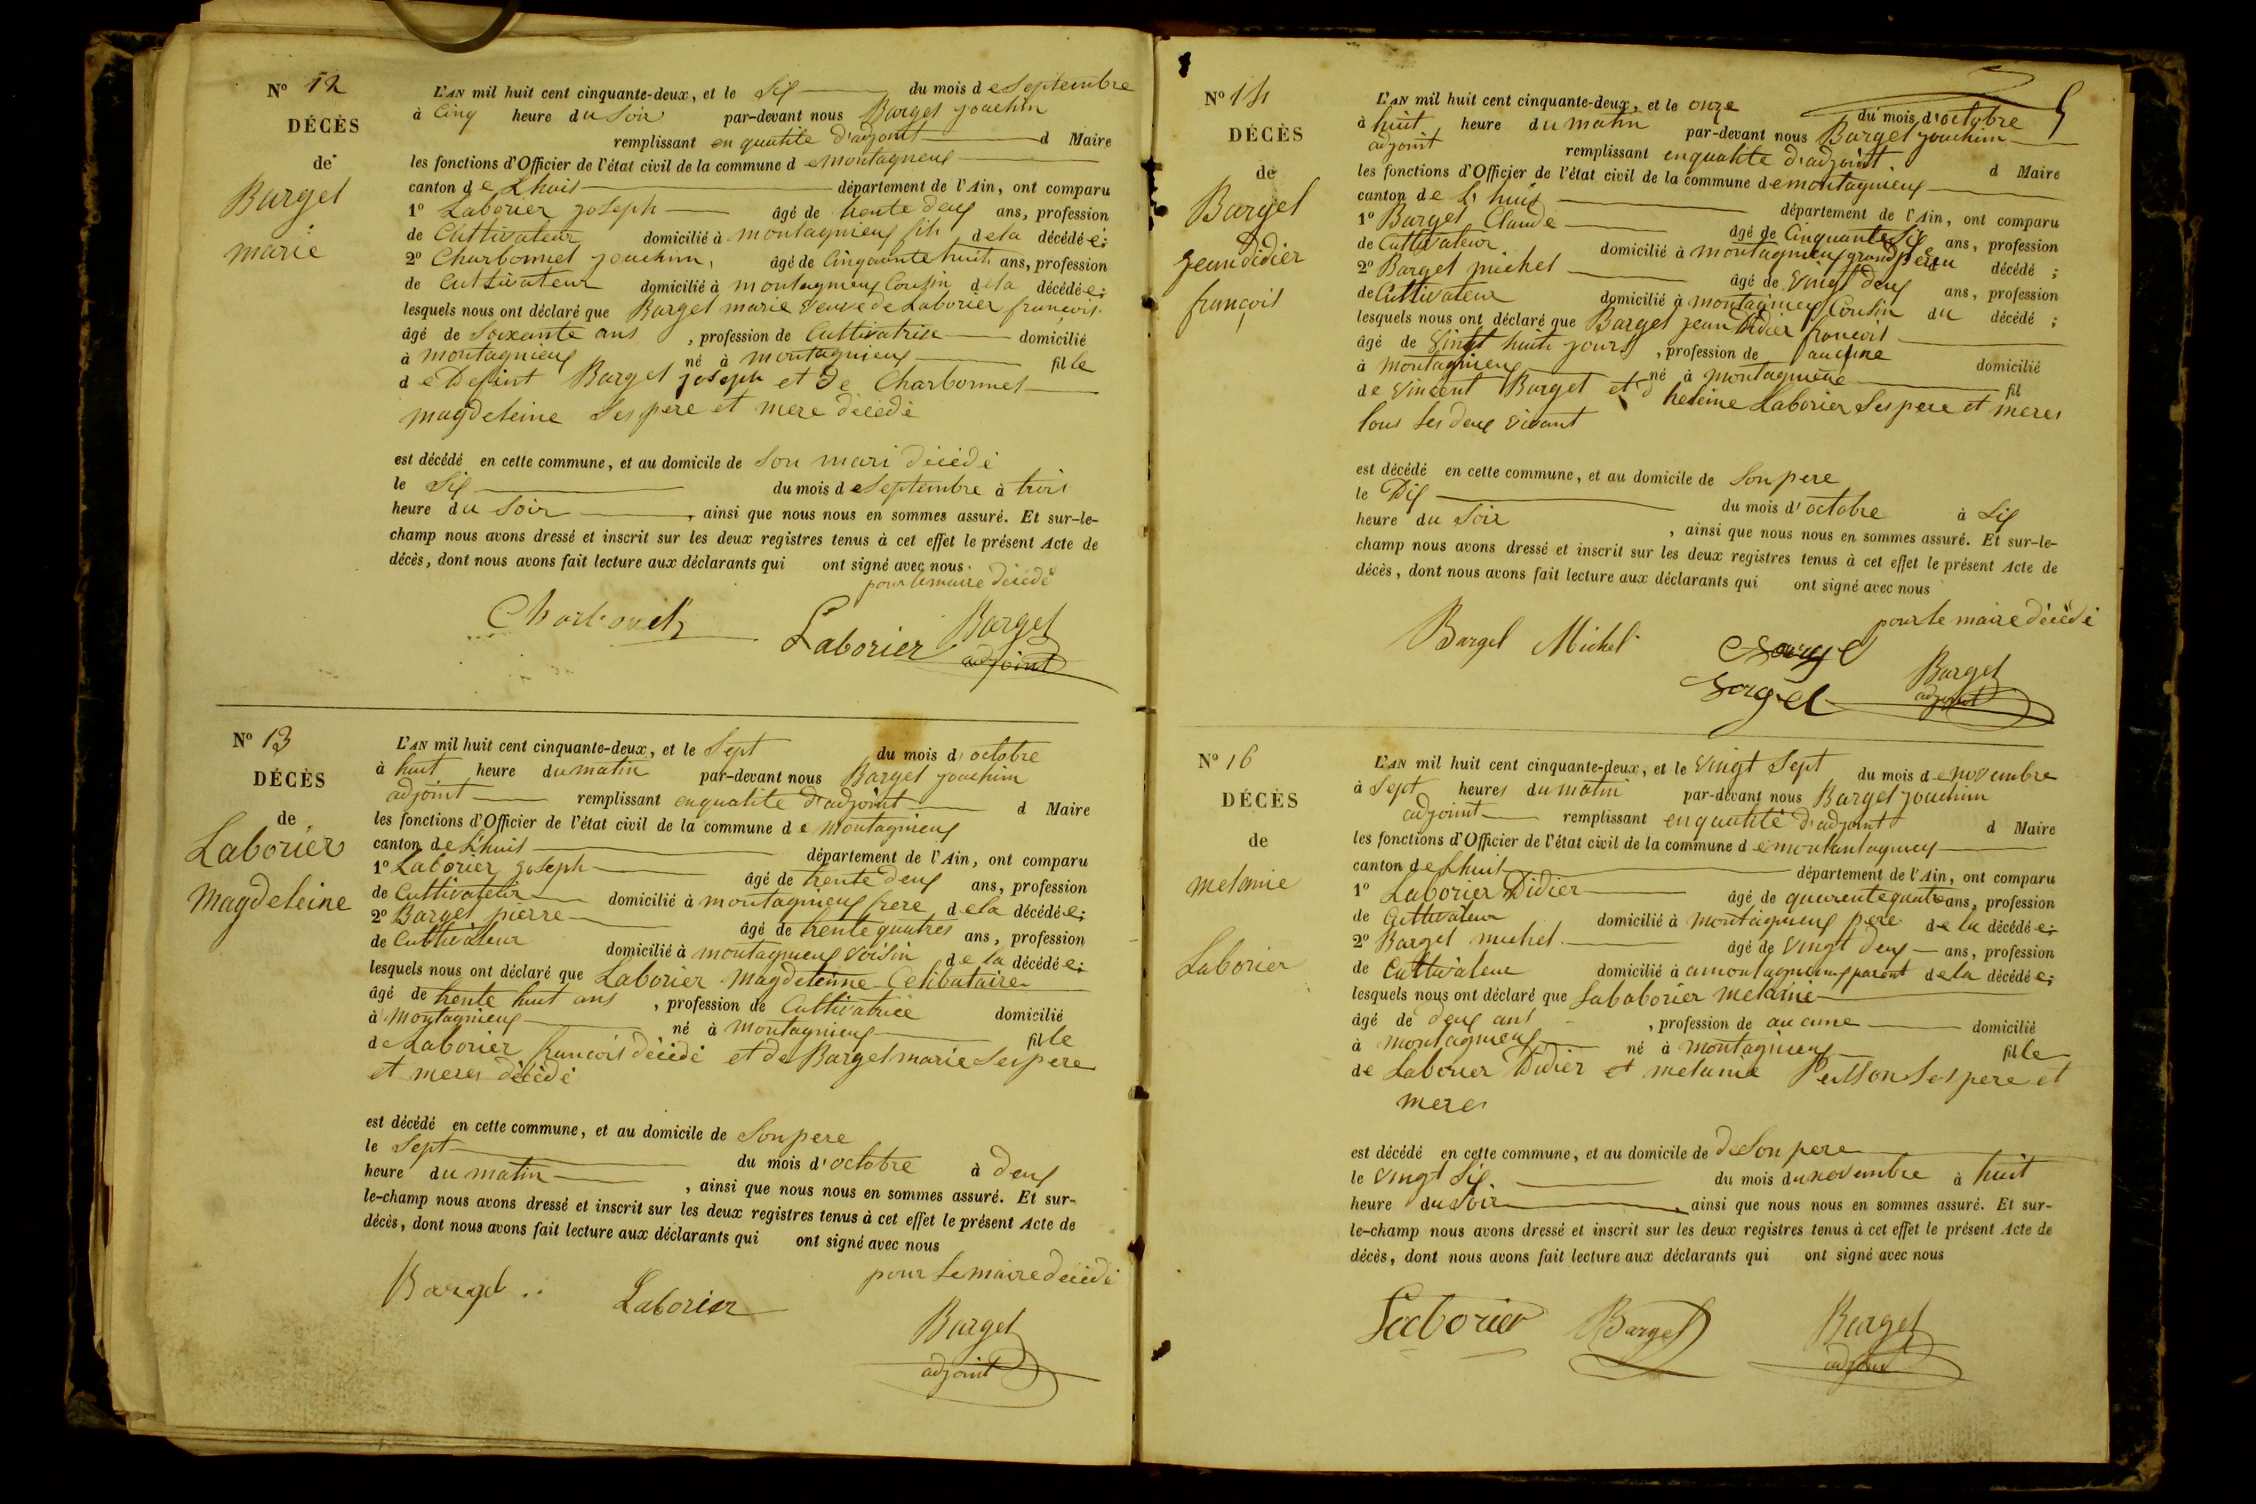 N° 12
DÉCÈS
de
Barget
marie
L'AN mil huit cent cinquante-deux, et le Six du mois de Septembre
à Cinq heure du Soir par-devant nous Barget joachim
remplissant en qualité d'adjoint d Maire
les fonctions d'Officier de l'état civil de la commune de montagnieux
canton de Lhuis département de l'Ain, ont comparu
1° Laborier joseph âgé de trente deux ans, profession
de Cultivateur domicilié à montagnieux fils de la décédée;
2° Charbonnet joachim, âgé de Cinquante huit ans, profession
de Cultivateur domicilié à montagnieux Cousin de la décédée;
lesquels nous ont déclaré que Barget marie veuve de Laborier françois
âgé de Soixante ans, profession de Cultivatrice domicilié
à montagnieux né à montagnieux fille
de Defunt Barget joseph et de Charbonnet
magdeleine Ses pere et mere décédé
est décédé en cette commune, et au domicile de Son mari décédé
le Six du mois de Septembre à trois
heure du Soir, ainsi que nous nous en sommes assuré. Et sur-le-
champ nous avons dressé et inscrit sur les deux registres tenus à cet effet le présent Acte de
décès, dont nous avons fait lecture aux déclarants qui ont signé avec nous.
pour le maire décédé
Charbonet Laborier Barget
adjoint
N° 13
DÉCÈS
de
Laborier
Magdeleine
L'AN mil huit cent cinquante-deux, et le Sept du mois d'octobre
à huit heure du matin par-devant nous Barget joachim
adjoint remplissant en qualité d'adjoint d Maire
les fonctions d'Officier de l'état civil de la commune de montagnieux
canton de Lhuis département de l'Ain, ont comparu
1° Laborier joseph âgé de trente deux ans, profession
de Cultivateur domicilié à montagnieux frere de la décédée;
2° Barget pierre âgé de trente quatres ans, profession
de Cultivateur domicilié à montagnieux voisin de la décédée;
lesquels nous ont déclaré que Laborier Magdeleinne Celibataire
âgé de trente huit ans, profession de Cultivatrice domicilié
à Montagnieux né à Montagnieux fille
de Laborier francois décédé et de Barget marie Ses pere
et meres décédé
est décédé en cette commune, et au domicile de Son pere
le Sept du mois d'octobre à deux
heure du matin, ainsi que nous nous en sommes assuré. Et sur-
le-champ nous avons dressé et inscrit sur les deux registres tenus à cet effet le présent Acte de
décès, dont nous avons fait lecture aux déclarants qui ont signé avec nous
pour le maire décédé
Bargel Laborier
Barget
adjoint
5
N° 14
DÉCÈS
de
Barget
jean didier
françois
L'AN mil huit cent cinquante-deux, et le onze du mois d'octobre
à huit heure du matin par-devant nous Barget joachim
adjoint remplissant en qualité d'adjoint d Maire
les fonctions d'Officier de l'état civil de la commune de montagnieux
canton de L'huis département de l'Ain, ont comparu
1° Barget Claude âgé de Cinquante Six ans, profession
de Cultivateur domicilié à montagnieux grand pere du décédé;
2° Barget michel âgé de vingt deux ans, profession
de Cultivateur domicilié à montagnieux Cousin du décédé;
lesquels nous ont déclaré que Barget jean Didier francois
âgé de Vingt huits jours, profession de aucune domicilié
à montagnieux né à montagnieux fil
de Vincent Barget et d heleine Laborier Ses pere et meres
tous les deux vivant
est décédé en cette commune, et au domicile de Son pere
le Dix du mois d'octobre à Six
heure du Soir, ainsi que nous nous en sommes assuré. Et sur-le-
champ nous avons dressé et inscrit sur les deux registres tenus à cet effet le présent Acte de
décès, dont nous avons fait lecture aux déclarants qui ont signé avec nous
pour le maire décédé
Bargel Michel Bargel Barget
Bargel adjoint
N° 16
DÉCÈS
de
melanie
Laborier
L'AN mil huit cent cinquante-deux, et le vingt Sept du mois de novembre
à Sept heures du matin par-devant nous Barget joachim
adjoint remplissant en qualité d'adjoint d Maire
les fonctions d'Officier de l'état civil de la commune de montantagnieux
canton de Lhuis département de l'Ain, ont comparu
1° Laborier Didier âgé de quarente quatre ans, profession
de Cultivateur domicilié à montagnieux pere de la décédée;
2° Barget michel âgé de vingt deux ans, profession
de Cultivateur domicilié à a montagnieux parent de la décédée;
lesquels nous ont déclaré que Lababorier melanie
âgé de deux ans, profession de aucune domicilié
à montagnieux né à montagnieux fille
de Laborier Didier et melanie Ses pere et
meres
est décédé en cette commune, et au domicile de de Son pere
le vingt Six du mois du novembre à huit
heure du Soir, ainsi que nous nous en sommes assuré. Et sur-
le-champ nous avons dressé et inscrit sur les deux registres tenus à cet effet le présent Acte de
décès, dont nous avons fait lecture aux déclarants qui ont signé avec nous
Laborier Barget Barget
adjoint